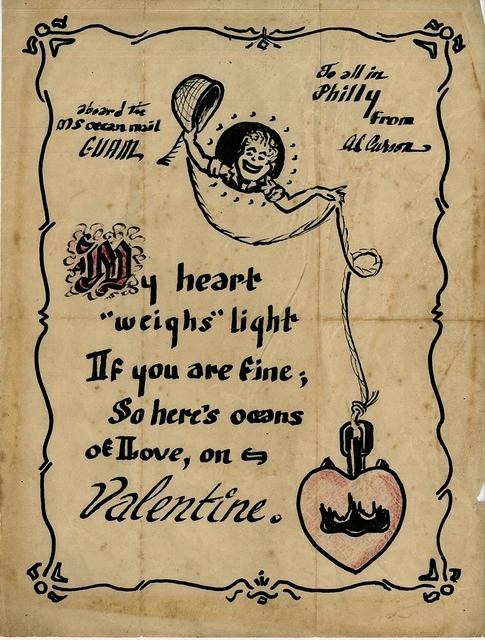 aboard the
MS ocean mail
GUAM
To all in
Philly
From
Al Carson
My heart
"weighs" light
If you are fine;
So here's oceans
of Love, on
Valentine.